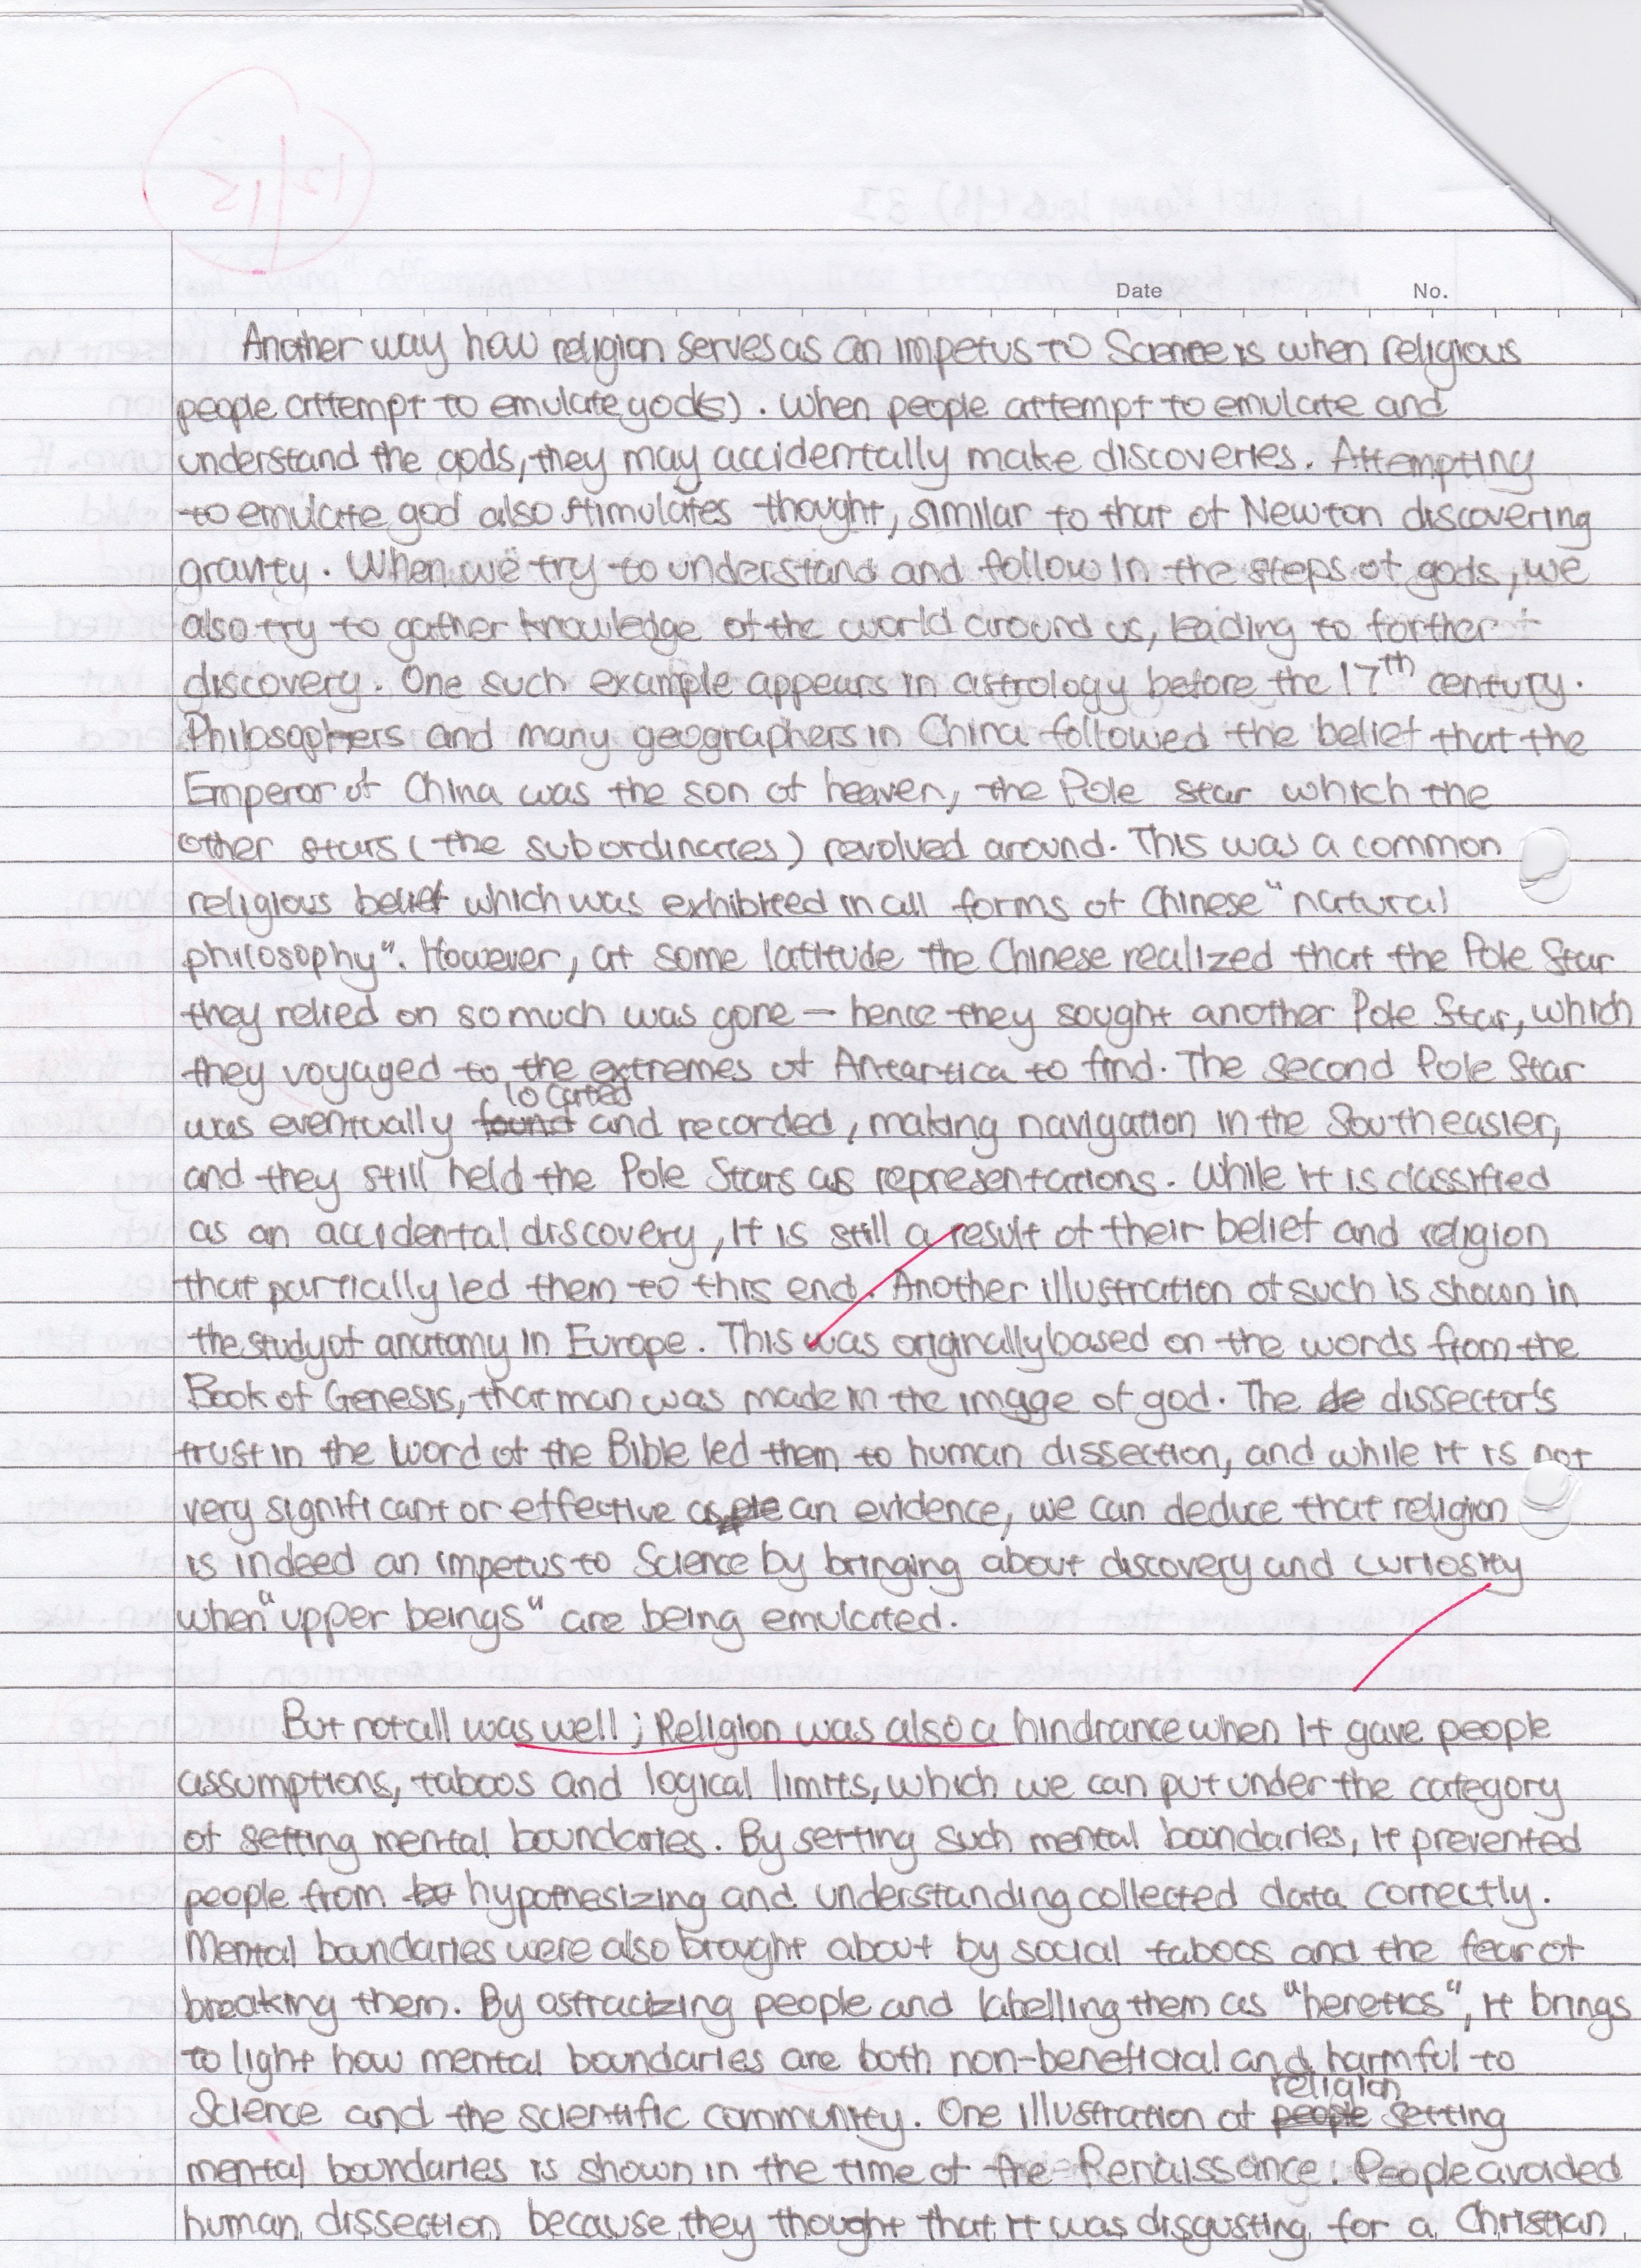 Date No.
Another way how religion serves as an impetus to Science is when religious
people attempt to emulate god(s). When people attempt to emulate and
understand the gods, they may accidentally make discoveries. Attempting
to emulate god also stimulates thought, similar to that of Newton discovering
gravity. When we try to understand and follow in the steps of gods, we
also try to gather knowledge of the world around us, leading to farther
discovery. One such example appears in astrology before the 17th century.
Philosophers and many geographers in China followed the belief that the
Emperor of China was the son of heaven, the Pole star which the
other stars (the subordinaries) revolved around. This was a common
religious belief which was exhibited in all forms of Chinese "natural
philosophy". However, at some latitude the Chinese realized that the Pole Star
they relied on so much was gone — hence they sought another Pole Star, which
they voyaged to the extremes of Antartica to find. The second Pole Star
was eventually found located and recorded, making navigation in the South easier,
and they still held the Pole Stars as representations. While it is classified
as an accidental discovery, it is still a result of their belief and religion
that partially led them to this end. Another illustration of such is shown in
the study of anatomy in Europe. This was originally based on the words from the
Book of Genesis, that man was made in the image of god. The de dissector's
trust in the Word of the Bible led them to human dissection, and while it is not
very significant or effective as an evidence, we can deduce that religion
is indeed an impetus to Science by bringing about discovery and curiosity
when "upper beings" are being emulated.
But not all was well; Religion was also a hindrance when it gave people
assumptions, taboos and logical limits, which we can put under the category
of setting mental boundaries. By setting such mental boundaries, it prevented
people from hypothesizing and understanding collected data correctly.
Mental boundaries were also brought about by social taboos and the fear of
breaking them. By ostracizing people and labelling them as "heretics", it brings
to light how mental boundaries are both non-beneficial and harmful to
Science and the scientific community. One illustration of people religion setting
mental boundaries is shown in the time of the Renaissance. People avoided
human dissection because they thought that it was disgusting for a Christian